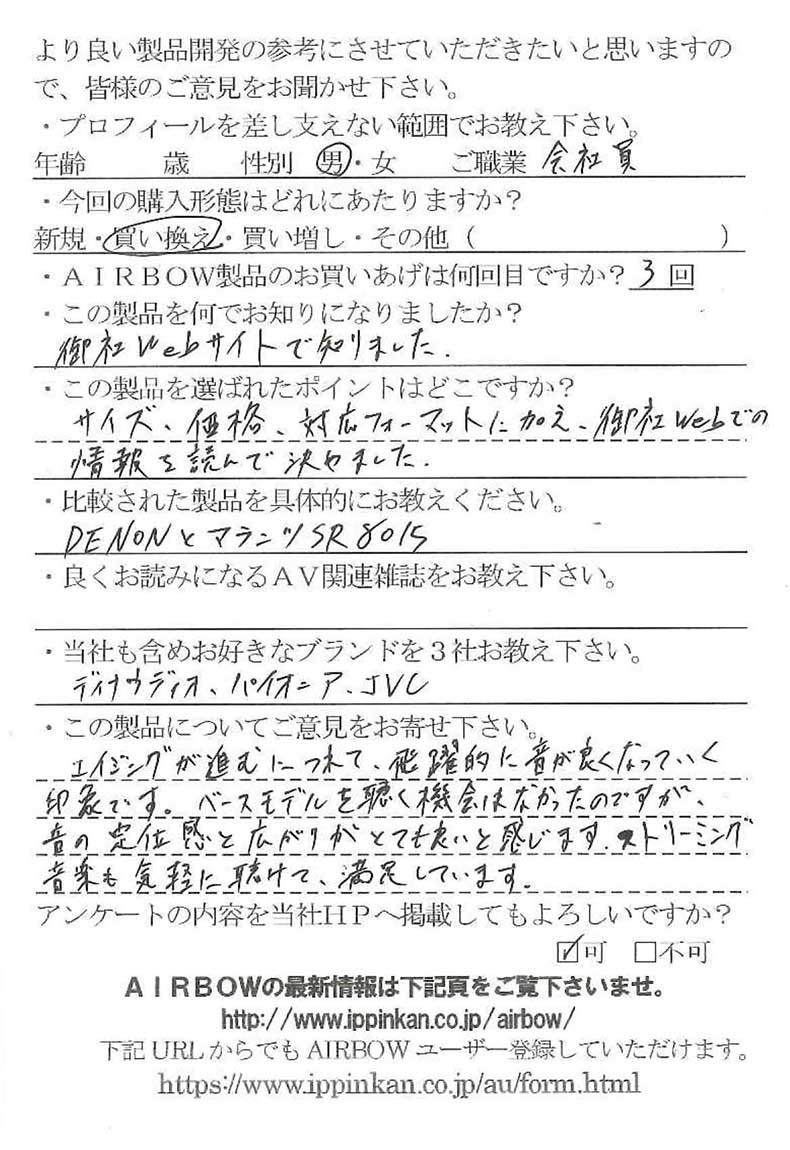 より良い製品開発の参考にさせていただきたいと思いますの
で、皆様のご意見をお聞かせ下さい。
・プロフィールを差し支えない範囲でお教え下さい。
年齢　　　歳　　性別　男・女　　ご職業　会社員
・今回の購入形態はどれにあたりますか？
新規・買い換え・買い増し・その他（　　　　　　　　　）
・ＡＩＲＢＯＷ製品のお買いあげは何回目ですか？ 3 回
・この製品を何でお知りになりましたか？
御社Webサイトで知りました.
・この製品を選ばれたポイントはどこですか？
サイズ、価格、対応フォーマットに加え、御社Webでの
情報を読んで決めました.
・比較された製品を具体的にお教えください。
DENONとマランツSR8015
・良くお読みになるＡＶ関連雑誌をお教え下さい。
・当社も含めお好きなブランドを３社お教え下さい。
ディナウディオ、パイオニア、JVC
・この製品についてご意見をお寄せ下さい。
エイジングが進むにつれて、飛躍的に音が良くなっていく
印象です。ベースモデルを聴く機会はなかったのですが、
音の定位感と広がりがとても良いと感じます.ストリーミング
音楽も気軽に聴けて、満足しています.
アンケートの内容を当社ＨＰへ掲載してもよろしいですか？
☑可　□不可
ＡＩＲＢＯＷの最新情報は下記頁をご覧下さいませ。
http://www.ippinkan.co.jp/airbow/
下記 URL からでも AIRBOW ユーザー登録していただけます。
https://www.ippinkan.co.jp/au/form.html